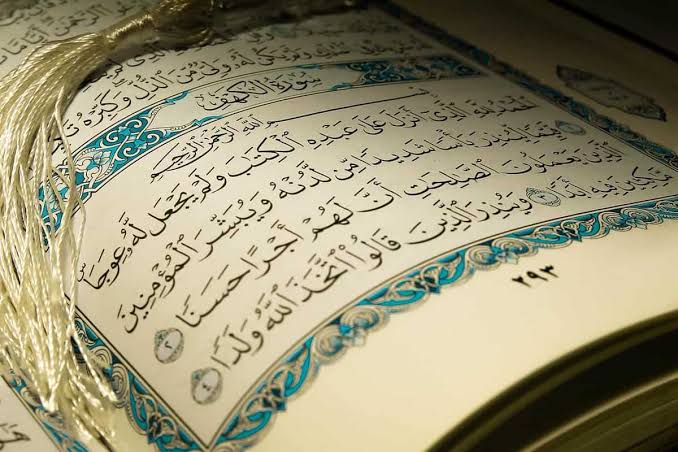 وَلِيٌّ مِّنَ ٱلذُّلِّ وَكَبِّرْهُ
سُورَةُ ٱلْكَهْفِ
بِسْمِ ٱللَّهِ ٱلرَّحْمَٰنِ ٱلرَّحِيمِ
ٱلْحَمْدُ لِلَّهِ ٱلَّذِىٓ أَنزَلَ عَلَىٰ عَبْدِهِ ٱلْكِتَٰبَ وَلَمْ يَجْعَل لَّهُۥ عِوَجَاۜ
قَيِّمًا لِّيُنذِرَ بَأْسًا شَدِيدًا مِّن لَّدُنْهُ وَيُبَشِّرَ ٱلْمُؤْمِنِينَ
ٱلَّذِينَ يَعْمَلُونَ ٱلصَّٰلِحَٰتِ أَنَّ لَهُمْ أَجْرًا حَسَنًا ٢
مَّٰكِثِينَ فِيهِ أَبَدًا ٣ وَيُنذِرَ ٱلَّذِينَ قَالُوا۟ ٱتَّخَذَ ٱللَّهُ وَلَدًا ٤
٢٩٣